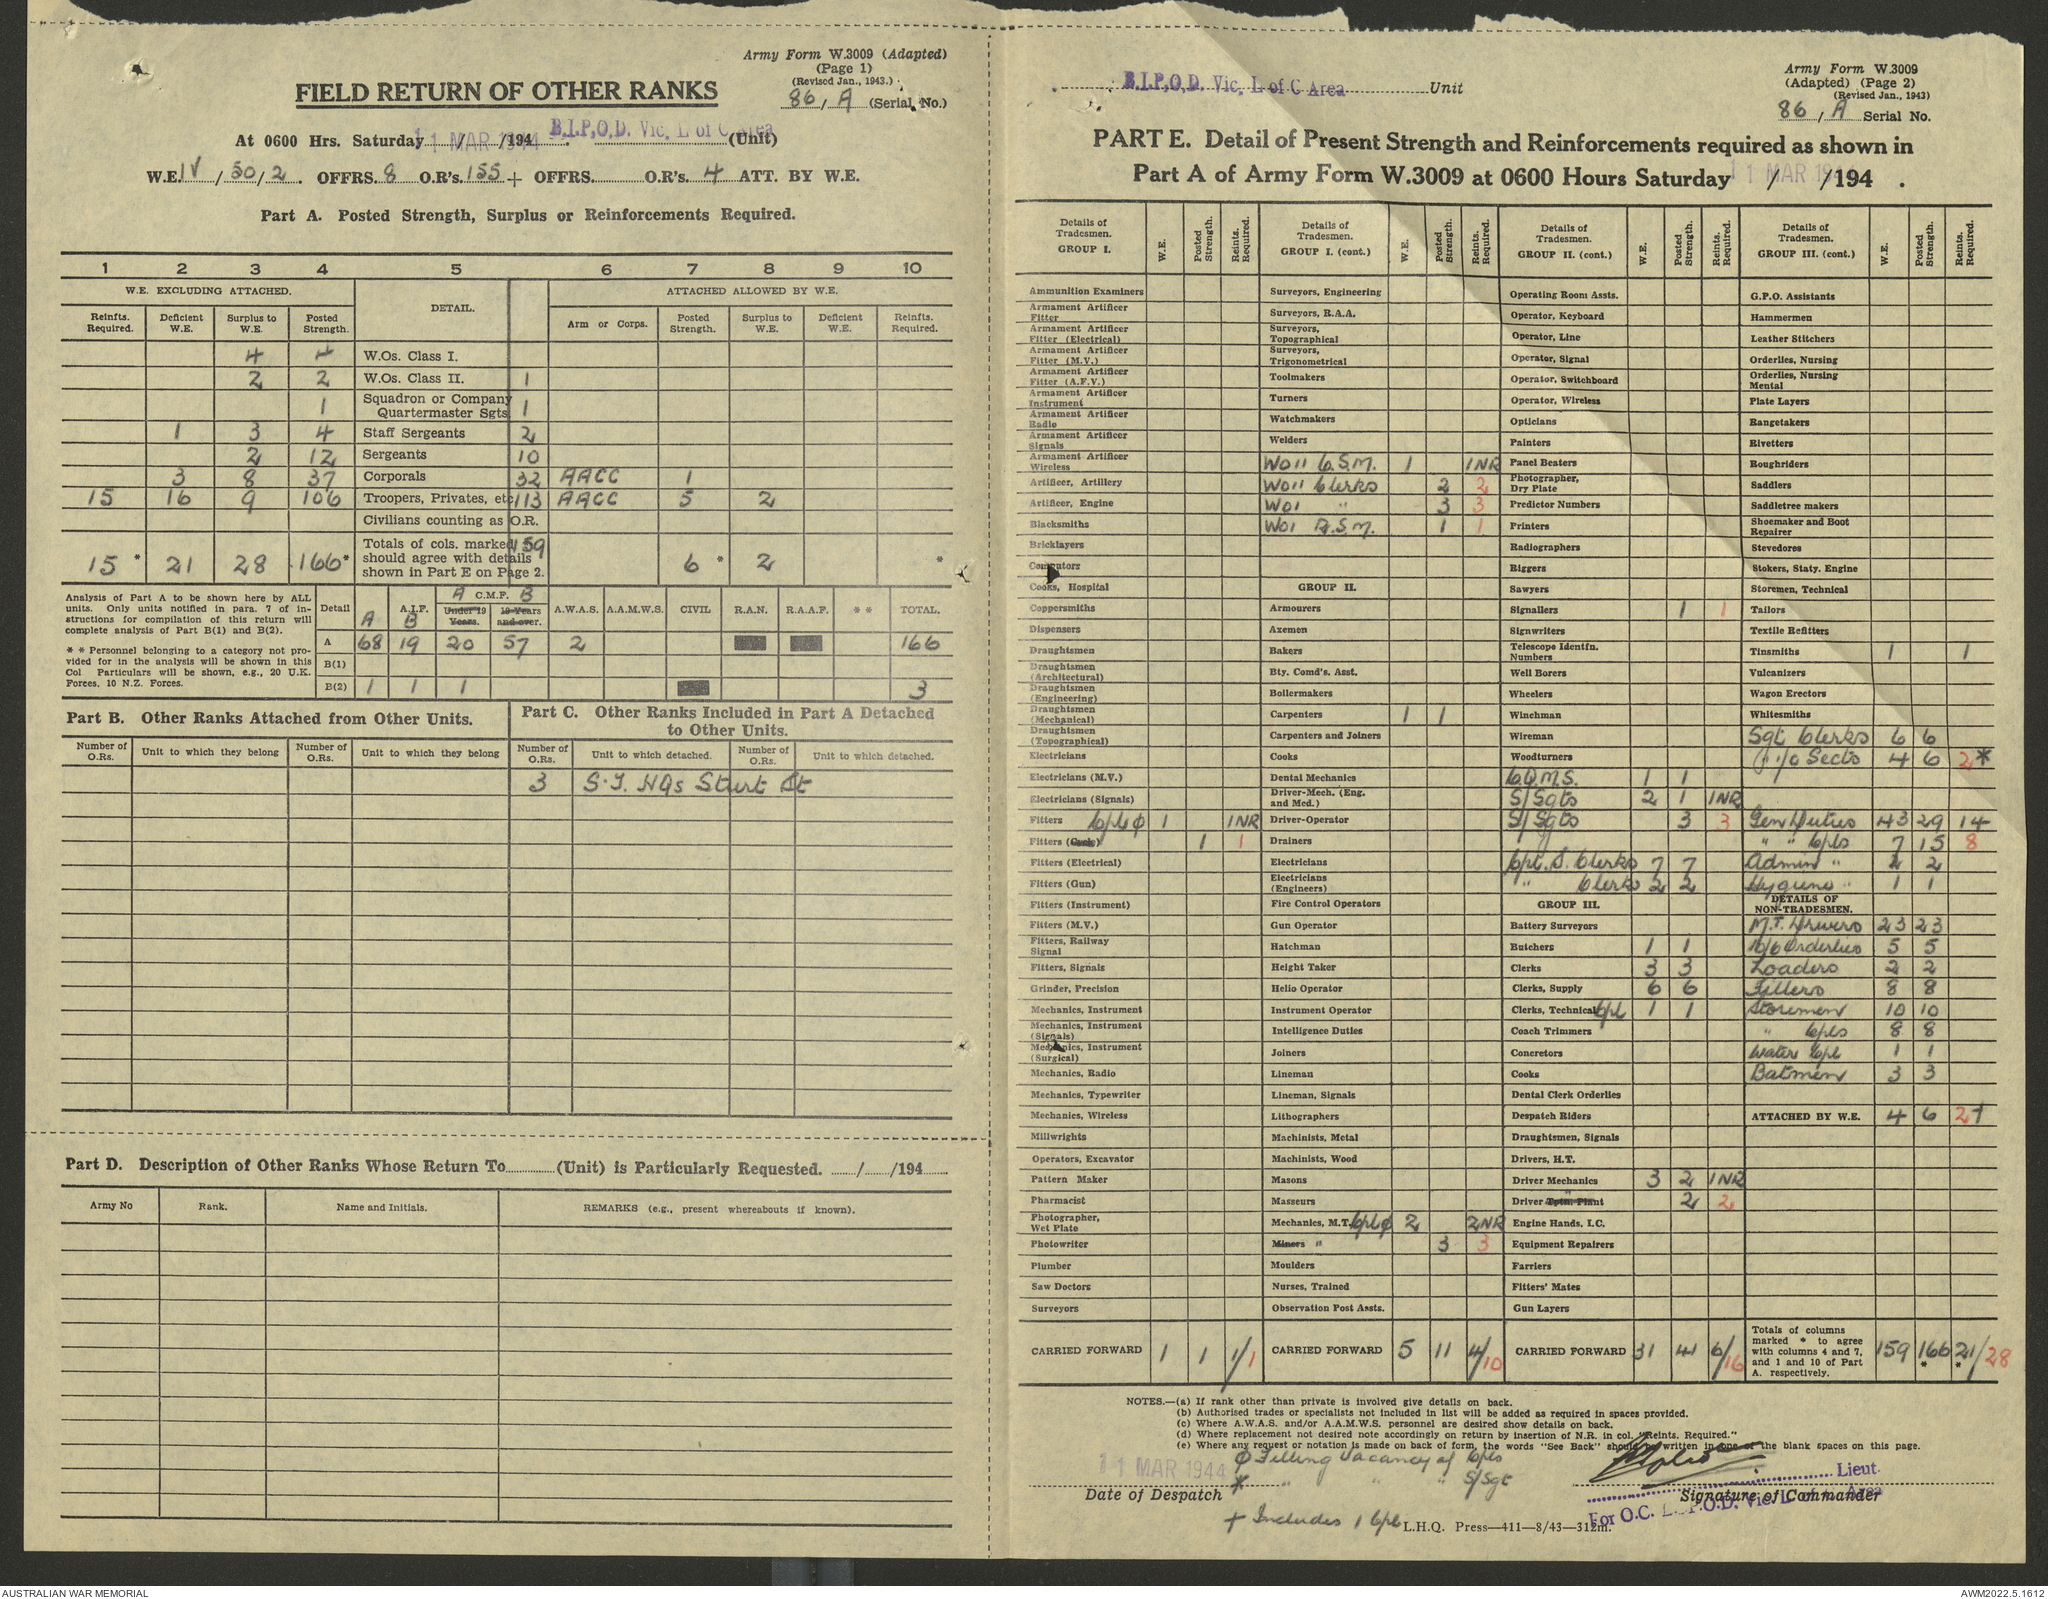 Army Form W.3009 (Adapted)
(Page 1)
(Revised Jan., 1943.)
FIELD RETURN OF OTHER RANKS
86, A (Serial No.)
At 0600 Hrs. Saturday 11 MAR 1944 / /194 . B.I.P.O.D. Vic. L of C Area (Unit)
W.E. IV / 30 / 2 . OFFRS. 8 O.R's. 155 + OFFRS. O.R's. 4 ATT. BY W.E.
Part A. Posted Strength, Surplus or Reinforcements Required.
1 2 3 4 5 6 7 8 9 10
W.E. EXCLUDING ATTACHED. DETAIL. ATTACHED ALLOWED BY W.E.
Reinfts. Required. Deficient W.E. Surplus to W.E. Posted Strength. Arm or Corps. Posted Strength. Surplus to W.E. Deficient W.E. Reinfts. Required.
4 4 W.Os. Class I.
2 2 W.Os. Class II. 1
1 Squadron or Company Quartermaster Sgts. 1
1 3 4 Staff Sergeants 2
2 12 Sergeants 10
3 8 37 Corporals 32 AACC 1
15 16 9 106 Troopers, Privates, etc. 113 AACC 5 2
Civilians counting as O.R.
15 * 21 28 166 * Totals of cols. marked should agree with details shown in Part E on Page 2. 159 6 * 2 *
Analysis of Part A to be shown here by ALL units. Only units notified in para. 7 of instructions for compilation of this return will complete analysis of Part B(1) and B(2).
* * Personnel belonging to a category not provided for in the analysis will be shown in this Col Particulars will be shown, e.g., 20 U.K. Forces, 10 N.Z. Forces.
Detail A.I.F. A B A C.M.F. B Under 19 Years. 19 Years and over. A.W.A.S. A.A.M.W.S. CIVIL R.A.N. R.A.A.F. * * TOTAL.
A 68 19 20 57 2 166
B(1)
B(2) 1 1 1 3
Part B. Other Ranks Attached from Other Units.
Part C. Other Ranks Included in Part A Detached to Other Units.
Number of O.Rs. Unit to which they belong Number of O.Rs. Unit to which they belong Number of O.Rs. Unit to which detached. Number of O.Rs. Unit to which detached.
3 S.T. HQs Sturt St
Part D. Description of Other Ranks Whose Return To (Unit) is Particularly Requested. / /194
Army No Rank. Name and Initials. REMARKS (e.g., present whereabouts if known).
B.I.P.O.D. Vic. L of C Area Unit
Army Form W.3009
(Adapted) (Page 2)
(Revised Jan., 1943)
86, A Serial No.
PART E. Detail of Present Strength and Reinforcements required as shown in
Part A of Army Form W.3009 at 0600 Hours Saturday 11 MAR 1944 / /194 .
Details of Tradesmen. GROUP I. W.E. Posted Strength. Reints. Required.
Ammunition Examiners
Armament Artificer Fitter
Armament Artificer Fitter (Electrical)
Armament Artificer Fitter (M.V.)
Armament Artificer Fitter (A.F.V.)
Armament Artificer Instrument
Armament Artificer Radio
Armament Artificer Signals
Armament Artificer Wireless
Artificer, Artillery
Artificer, Engine
Blacksmiths
Bricklayers
Computors
Cooks, Hospital
Coppersmiths
Dispensers
Draughtsmen
Draughtsmen (Architectural)
Draughtsmen (Engineering)
Draughtsmen (Mechanical)
Draughtsmen (Topographical)
Electricians
Electricians (M.V.)
Electricians (Signals)
Fitters Cpl ϕ 1 1NR
Fitters (Cycle) 1 1
Fitters (Electrical)
Fitters (Gun)
Fitters (Instrument)
Fitters (M.V.)
Fitters, Railway Signal
Fitters, Signals
Grinder, Precision
Mechanics, Instrument
Mechanics, Instrument (Signals)
Mechanics, Instrument (Surgical)
Mechanics, Radio
Mechanics, Typewriter
Mechanics, Wireless
Millwrights
Operators, Excavator
Pattern Maker
Pharmacist
Photographer, Wet Plate
Photowriter
Plumber
Saw Doctors
Surveyors
CARRIED FORWARD 1 1 1/1
Details of Tradesmen. GROUP I. (cont.) W.E. Posted Strength. Reints. Required.
Surveyors, Engineering
Surveyors, R.A.A.
Surveyors, Topographical
Surveyors, Trigonometrical
Toolmakers
Turners
Watchmakers
Welders
WO11 C.S.M. 1 1NR
WO11 Clerks 2 2
WO1 " 3 3
WO1 R.S.M. 1 1
GROUP II.
Armourers
Axemen
Bakers
Bty. Comd's. Asst.
Boilermakers
Carpenters 1 1
Carpenters and Joiners
Cooks
Dental Mechanics
Driver-Mech. (Eng. and Med.)
Driver-Operator
Drainers
Electricians
Electricians (Engineers)
Fire Control Operators
Gun Operator
Hatchman
Height Taker
Helio Operator
Instrument Operator
Intelligence Duties
Joiners
Lineman
Lineman, Signals
Lithographers
Machinists, Metal
Machinists, Wood
Masons
Masseurs
Mechanics, M.T. Cpl ϕ 2 2NR
Miners " 3 3
Moulders
Nurses, Trained
Observation Post Assts.
CARRIED FORWARD 5 11 4/10
Details of Tradesmen. GROUP II. (cont.) W.E. Posted Strength. Reints. Required.
Operating Room Assts.
Operator, Keyboard
Operator, Line
Operator, Signal
Operator, Switchboard
Operator, Wireless
Opticians
Painters
Panel Beaters
Photographer, Dry Plate
Predictor Numbers
Printers
Radiographers
Riggers
Sawyers
Signallers 1 1
Signwriters
Telescope Identfn. Numbers
Well Borers
Wheelers
Winchman
Wireman
Woodturners
C.Q.M.S. 1 1
S/Sgts 2 1 1NR
S/Sgts 3 3
Cpl. S. Clerks 7 7
" Clerks 2 2
GROUP III.
Battery Surveyors
Butchers 1 1
Clerks 3 3
Clerks, Supply 6 6
Clerks, Technical Cpl 1 1
Coach Trimmers
Concretors
Cooks
Dental Clerk Orderlies
Despatch Riders
Draughtsmen, Signals
Drivers, H.T.
Driver Mechanics 3 2 1NR
Driver Tptn. Plant " 2 2
Engine Hands, I.C.
Equipment Repairers
Farriers
Fitters' Mates
Gun Layers
CARRIED FORWARD 31 41 6/16
Details of Tradesmen. GROUP III. (cont.) W.E. Posted Strength. Reints. Required.
G.P.O. Assistants
Hammermen
Leather Stitchers
Orderlies, Nursing
Orderlies, Nursing Mental
Plate Layers
Rangetakers
Rivetters
Roughriders
Saddlers
Saddletree makers
Shoemaker and Boot Repairer
Stevedores
Stokers, Staty. Engine
Storemen, Technical
Tailors
Textile Refitters
Tinsmiths 1 1
Vulcanizers
Wagon Erectors
Whitesmiths
Sgt Clerks 6 6
" i/c Sects 4 6 2*
Gen Duties 43 29 14
" " Cpls 7 15 8
Admin " 2 2
Hygiene " 1 1
DETAILS OF NON-TRADESMEN.
M.T. Drivers 23 23
Orderlies 5 5
Loaders 2 2
Fillers 8 8
Storemen 10 10
" Cpls 8 8
Water Cpl 1 1
Batmen 3 3
ATTACHED BY W.E. 4 6 2†
Totals of columns marked * to agree with columns 4 and 7, and 1 and 10 of Part A. respectively. 159 166 * 21/28 *
NOTES.—(a) If rank other than private is involved give details on back.
(b) Authorised trades or specialists not included in list will be added as required in spaces provided.
(c) Where A.W.A.S. and/or A.A.M.W.S. personnel are desired show details on back.
(d) Where replacement not desired note accordingly on return by insertion of N.R. in col. "Reints. Required."
(e) Where any request or notation is made on back of form, the words "See Back" should be written in one of the blank spaces on this page.
11 MAR 1944 ϕ Filling Vacancy of Cpls
* " " " S/Sgt
Date of Despatch
Lieut.
Signature of Commander
For O.C. B.I.P.O.D. Vic. L of C Area
† Includes 1 Cpl
L.H.Q. Press—411—8/43—312m.
AUSTRALIAN WAR MEMORIAL
AWM2022.5.1612